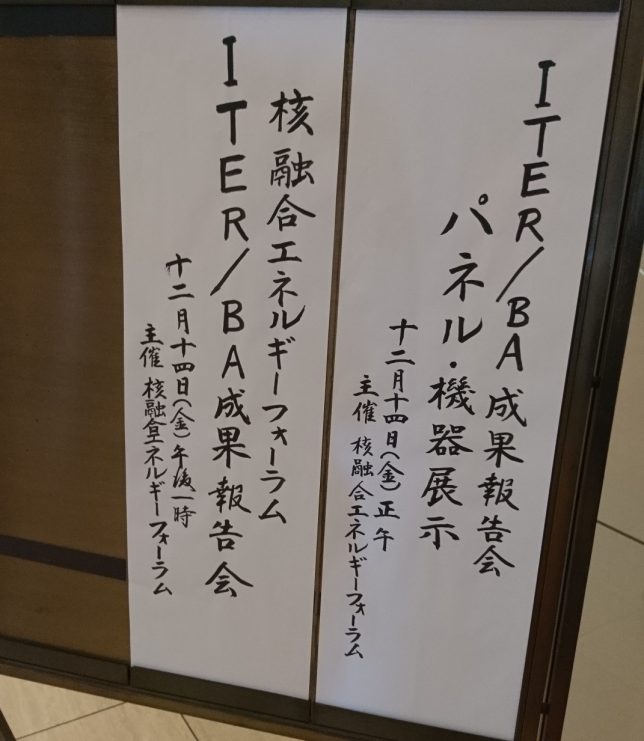 ITER/BA成果報告会
パネル・機器展示
十二月十四日(金)正午
主催 核融合エネルギーフォーラム
核融合エネルギーフォーラム
ITER/BA成果報告会
十二月十四日(金)午後一時
主催 核融合エネルギーフォーラム